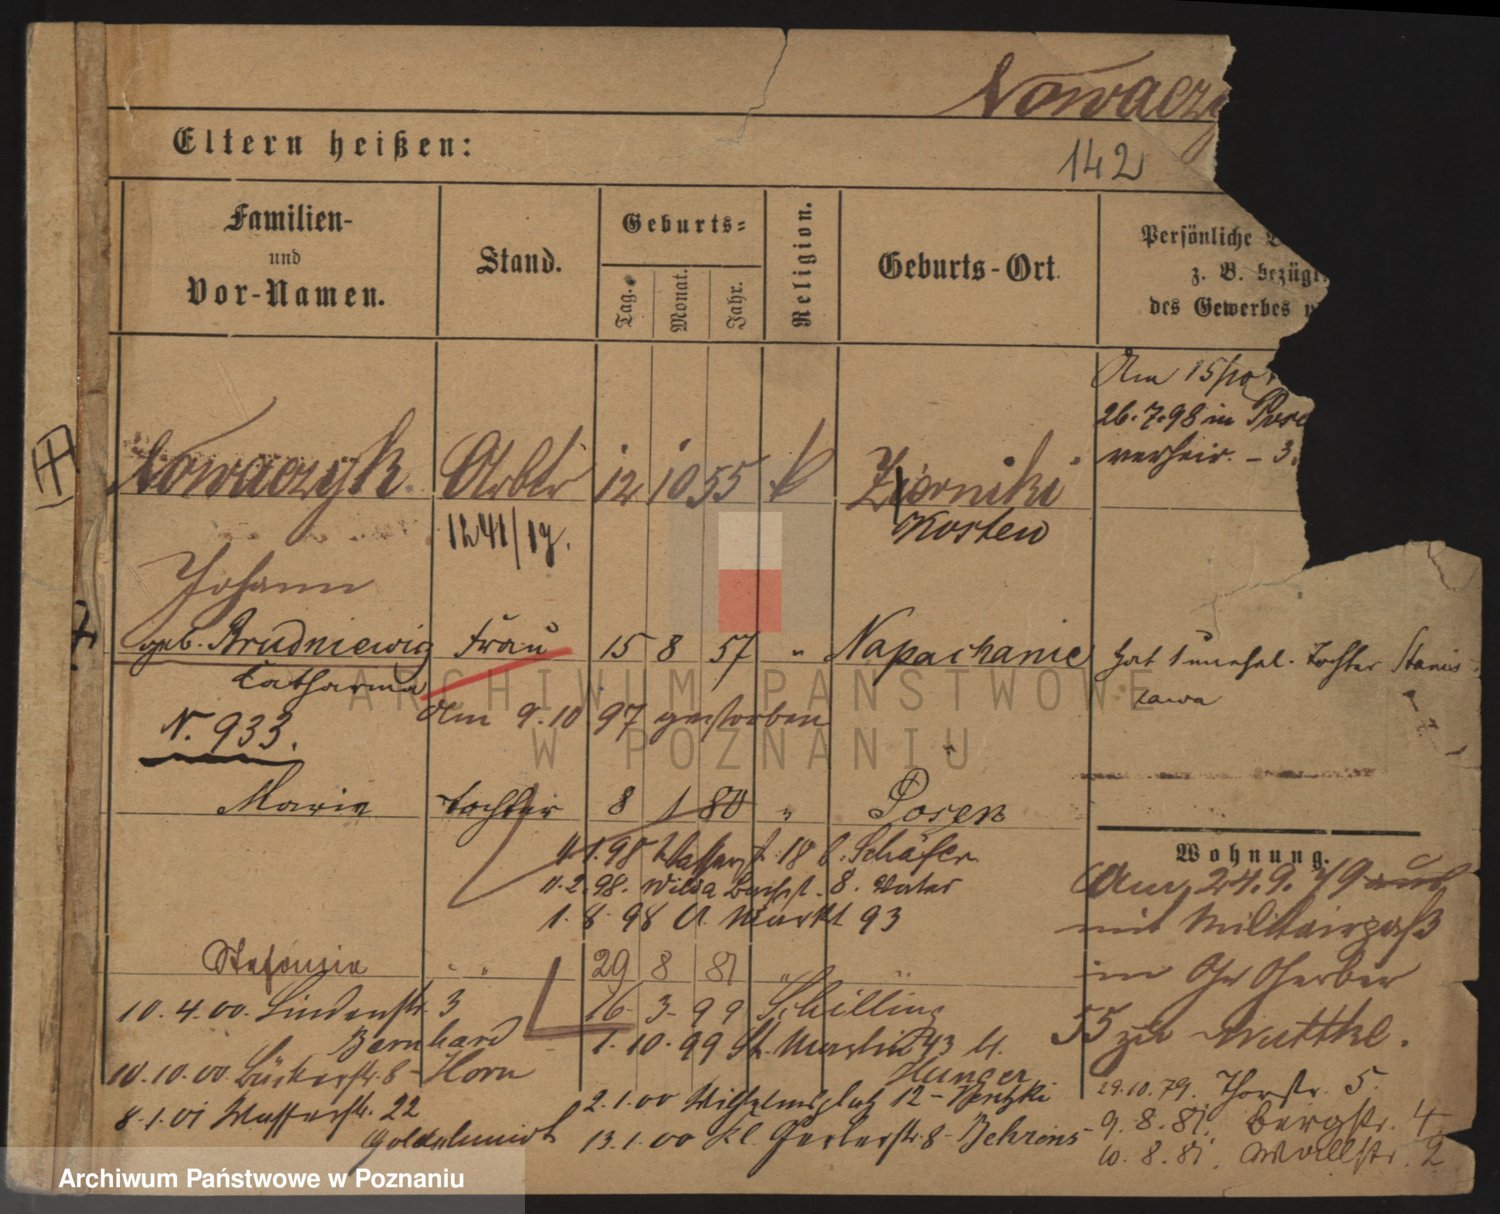 Nowaczy
142
Eltern heißen:
Familien-
und
Vor-Namen.
Stand.
Geburts-
Tag.
Monat.
Jahr.
Religion.
Geburts-Ort.
Persönliche
z. B. bezügl.
des Gewerbes
Am 15/10
26.7.98 in Pose
verheir. - 3.
Nowaczyk Arbtr 12 10 55 k
Kosten
1241/19.
Johann
geb. Brudniewig Frau 15 8 57 " Napachanie
Catharina
hat 1 unehel. Tochter Stanis-
lawa
Am 9.10.97 gestorben
N. 933.
Marie Tochter 8 1 80 " Posen
4.1.98 18 b. Schäfer
11.2.98. Wilda 8. Vater
1.8.98 A. Markt 93
Wohnung.
Am 24.9.79 aus
mit Militairpaß
in Gr Gerber
55 zu Wuttke.
29.10.79. Thorstr. 5.
9.8.81. Bergstr. 4
10.8.81. Wallstr. 2
Stefania " " 29 8 81 " "
16.3.99 Schilling
1.10.99 St. Martin 43 b.
Hunger
2.1.00 Wilhelmsplatz 12 -
13.1.00 Kl. Gerberstr. 8 - Behrens
10.4.00. Lindenstr. 3
Bernhard
10.10.00. Bäckerstr. 8 - Horn
8.1.01 Wasserstr. 22
Goldschmidt
ARCHIWUM PAŃSTWOWE
W POZNANIU
Archiwum Państwowe w Poznaniu